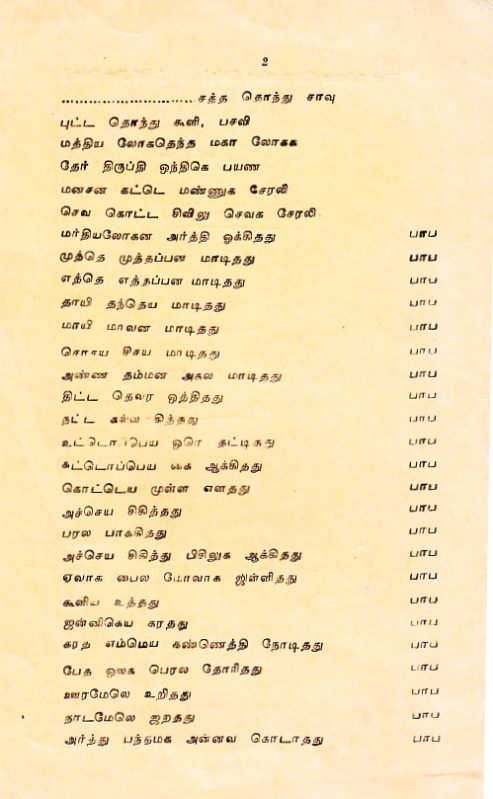 2
................................ சத்த தொந்து சாவு
புட்ட தொந்து கூளி, பசவி
மத்திய லோகதெந்த மகா லோகக
தேர் திருப்தி ஒந்திகெ பயண
மனசன கட்டெ மண்ணுக சேரலி
செவ கொட்ட சிவிலு செவக சேரலி
மர்தியலோகன அர்த்தி ஒக்கிதது பாப
முத்தெ முத்தப்பன மாடிதது பாப
எத்தெ எத்தப்பன மாடிதது பாப
தாயி தந்தெய மாடிதது பாப
மாயி மாவன மாடிதது பாப
மாடிதது பாப
அண்ண தம்மன அகல மாடிதது பாப
திட்ட தெவர ஒத்திதது பாப
நட்ட கல்ல கித்தது பாப
ஒரெ தட்டிதது பாப
சுட்டொப்பெய கை ஆக்கிதது பாப
கொட்டெய முள்ள எளதது பாப
அச்செய சிகித்தது பாப
பரல பாக்கிதது பாப
அச்செய சிகித்து பிசிலுக ஆக்கிதது பாப
ஏவாக பைல மோவாக ஜள்ளிதது பாப
கூளிய உத்தது பாப
ஜன்னிகெய கரதது பாப
கரத எம்மெய கண்ணெத்தி நோடிதது பாப
பேத ஒலக பெரல தோரிதது பாப
ஊரமேலெ உறிதது பாப
நாடமேலெ ஜறதது பாப
அர்த்து பந்தமக அன்னவ கொடாதது பாப